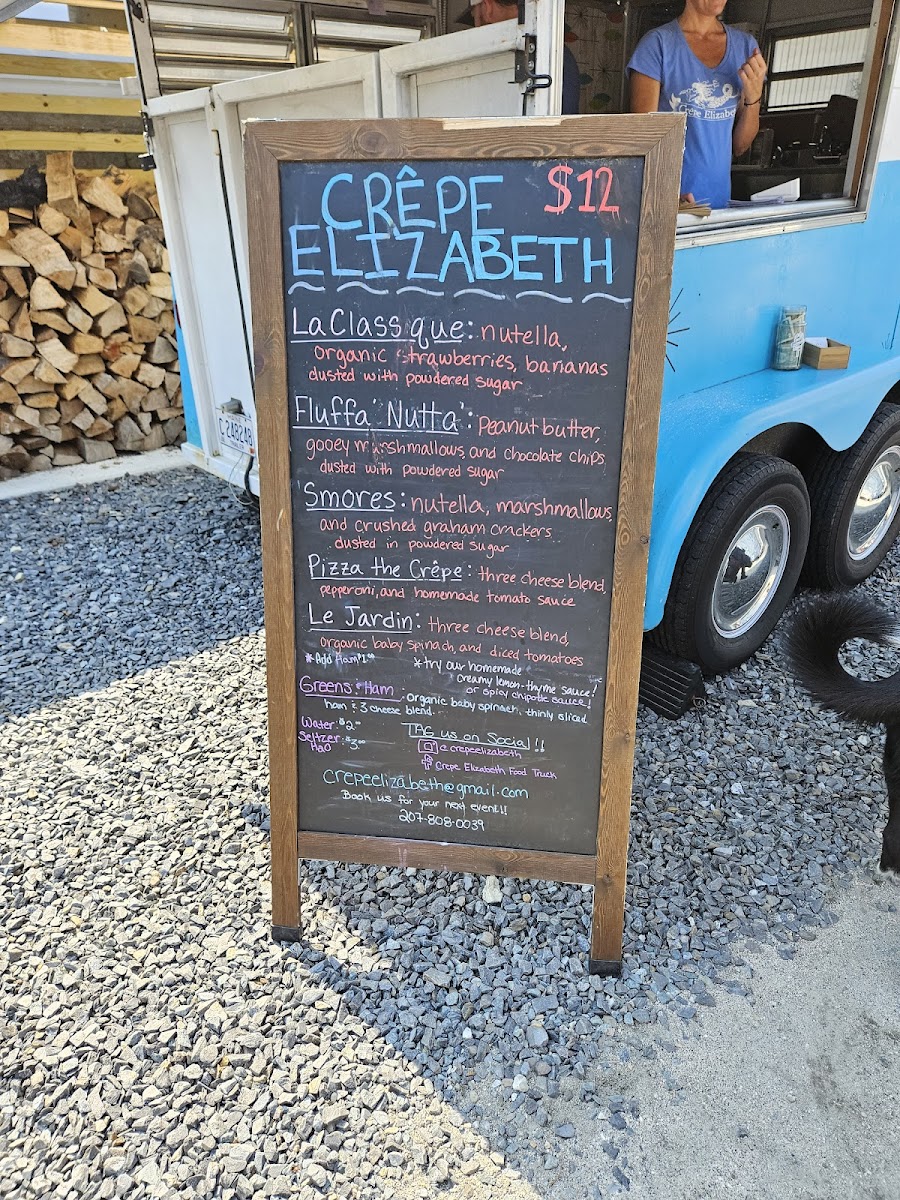 CRÊPE $12
ELIZABETH
La Classique: nutella,
organic strawberries, bananas
dusted with powdered sugar
Fluffa "Nutta": Peanut butter,
gooey marshmallows, and chocolate chips
dusted with powdered sugar
Smores: nutella, marshmallows,
and crushed graham crackers
dusted in powdered sugar
Pizza the Crêpe: three cheese blend,
pepperoni, and homemade tomato sauce
Le Jardin: three cheese blend,
organic baby spinach, and diced tomatoes
*Add Ham $1.00
*try our homemade
creamy lemon-thyme sauce!
or spicy chipotle sauce!
Greens & Ham: organic baby spinach, thinly sliced
ham & 3 cheese blend.
Water: $2.00
Seltzer: $3.00
H2O
TAG us on Social!!
@crepeelizabeth
Crepe Elizabeth Food Truck
crepeelizabeth@gmail.com
Book us for your next event!!
207-808-0039